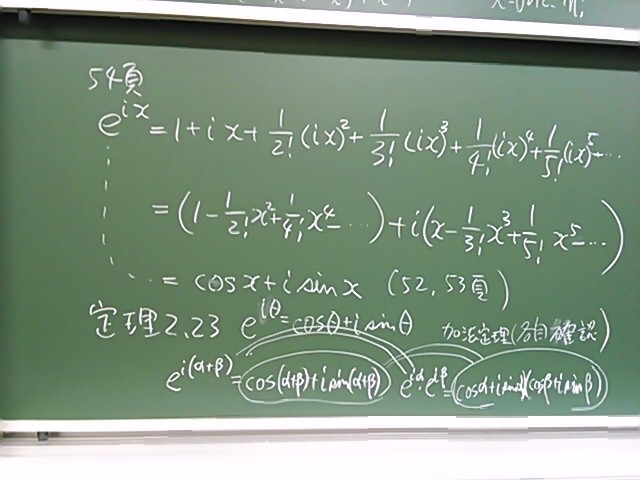 54頁
e^{ix} = 1 + ix + \frac{1}{2!}(ix)^2 + \frac{1}{3!}(ix)^3 + \frac{1}{4!}(ix)^4 + \frac{1}{5!}(ix)^5 + ...
= (1 - \frac{1}{2!}x^2 + \frac{1}{4!}x^4 - ...) + i(x - \frac{1}{3!}x^3 + \frac{1}{5!}x^5 - ...)
= cos x + i sin x (52, 53頁)
定理2.23 e^{iθ} = cosθ + i sinθ 加法定理(各自確認)
e^{i(α+β)} = cos(α+β) + i sin(α+β) e^{iα}e^{iβ} = (cosα + i sinα)(cosβ + i sinβ)